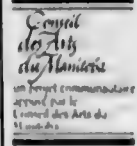 Conseil
des Arts
du Manitoba
un projet communautaire
appuyé par le
Conseil des Arts du
Manitoba